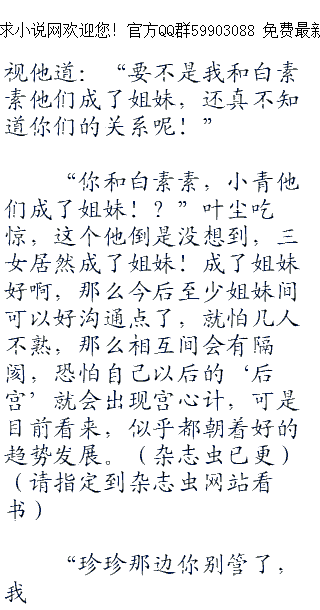 求小说网欢迎您！官方QQ群59903088 免费最新
视他道：“要不是我和白素
素他们成了姐妹，还真不知
道你们的关系呢！”
“你和白素素，小青他
们成了姐妹！？”叶尘吃
惊，这个他倒是没想到，三
女居然成了姐妹！成了姐妹
好啊，那么今后至少姐妹间
可以好沟通点了，就怕几人
不熟，那么相互间会有隔
阂，恐怕自己以后的‘后
宫’就会出现宫心计，可是
目前看来，似乎都朝着好的
趋势发展。（杂志虫已更）
（请指定到杂志虫网站看
书）
“珍珍那边你别管了，
我